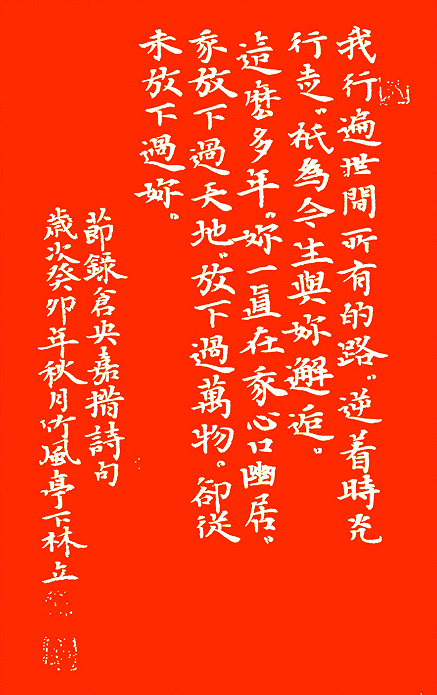 我行遍世間所有的路〃逆着時光
行走〃祇為今生與妳邂逅。
這麼多年〃妳一直在我心口幽居〃
我放下過天地〃放下過萬物。卻從
未放下過妳。
節錄倉央嘉措詩句
歲次癸卯年秋月竹風亭下林立